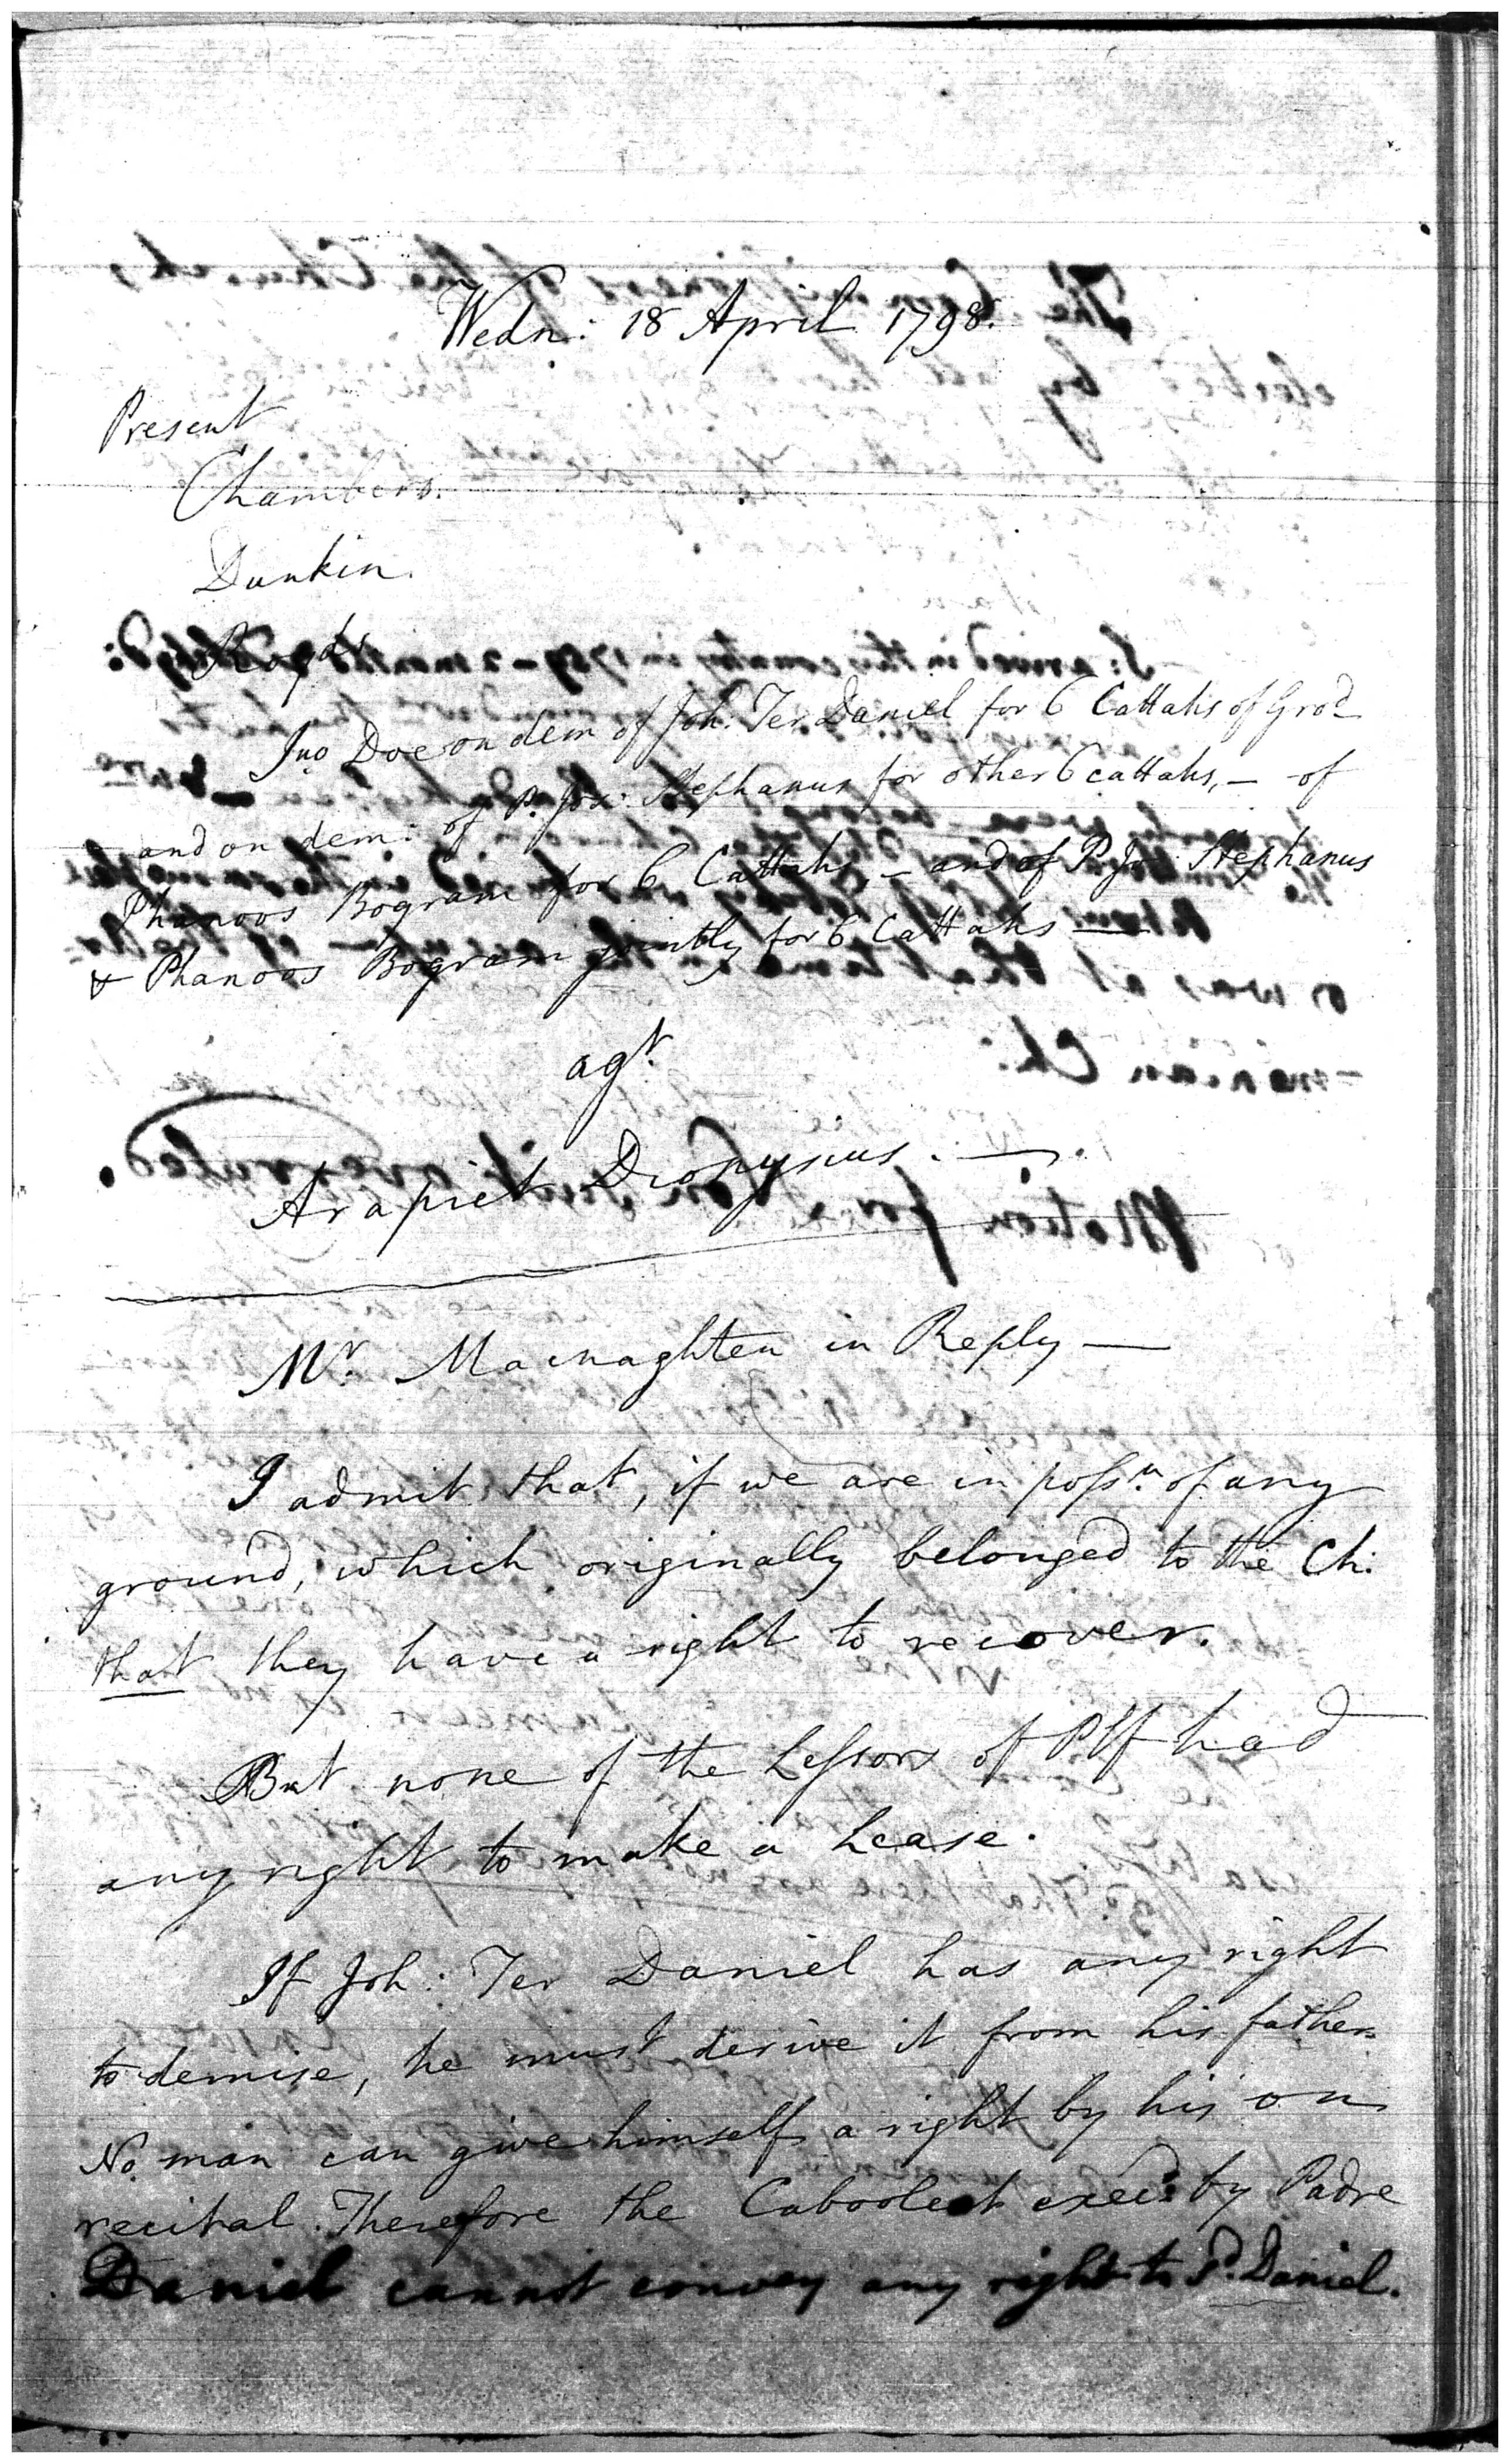 Wedn: 18 April 1798.
Present
Chambers.
Dunkin.
Royds
Jno Doe on dem of Joh: Ter Daniel for 6 Cattahs of Grod
and on dem: of P. Jos: Stephanus for other 6 cattahs, — of
Phanoos Bogram for 6 Cattahs, — and of P Jos: Stephanus
& Phanoos Bogram jointly for 6 Cattahs —
agt.
Arapiet Dionysius. —.
Mr. Macnaghten in Reply —
I admit that, if we are in possn. of any
ground, which originally belonged to the Ch:
that they have a right to recover.
But none of the Lessors of Plf had
any right to make a Lease.
If Joh: Ter Daniel has any right
to demise, he must derive it from his father.
No man can give himself a right by his on
recital. Therefore the Cabooleat execd. by Padre
Daniel cannot convey any right to P. Daniel.